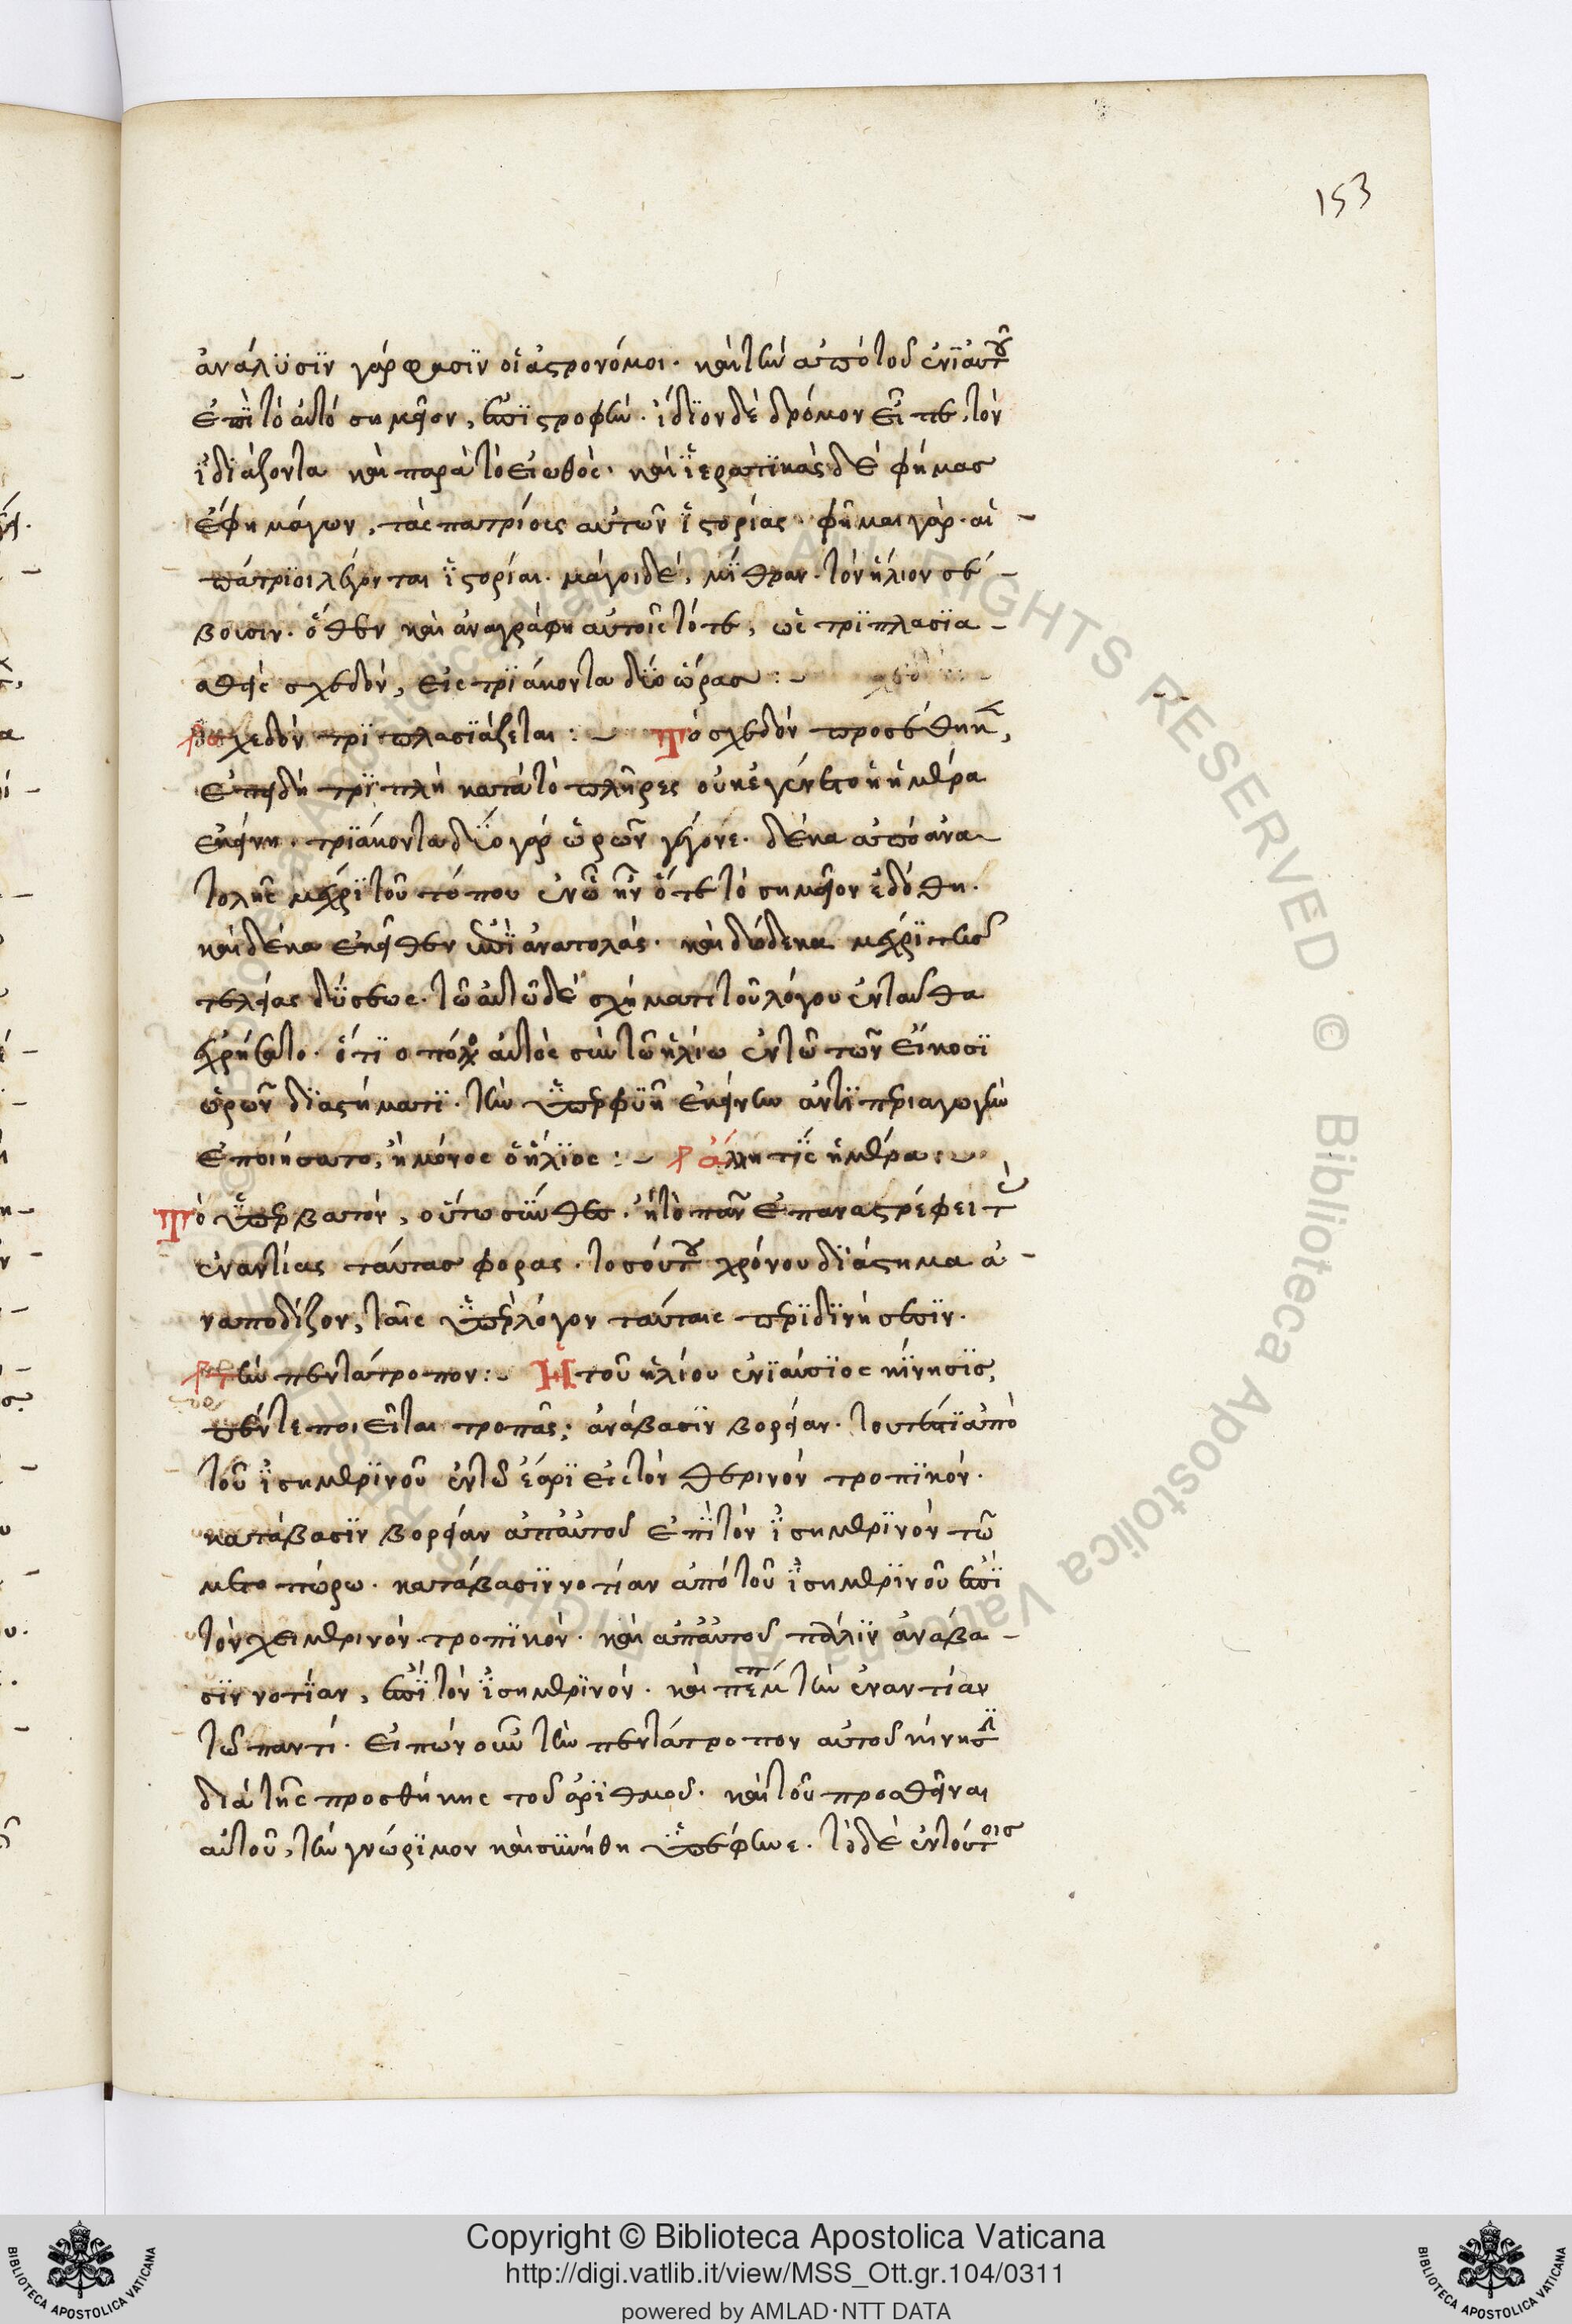 153
ἀνάλυσϊν γάρ φασϊν οἱ ἀστρονόμοι. καὶ τὴν ἀπὸ τοῦ ἐνϊαυτοῦ
ἐπὶ τὸ αὐτὸ σημεῖον, ἐπϊστροφήν. ἴδϊον δὲ δρόμον εἶπε, τὸν
ἰδϊάζοντα καὶ παρὰ τὸ εἰωθός. καὶ ἱερατϊκὰς δὲ φήμας
ἔφη μάγων, τὰς πατρίους αὐτῶν ἱστορίας. φῆμαι γάρ. αἱ
πάτρϊοι λέγονται ἱστορίαι. μάγοι δέ, μΐθραν. τὸν ἥλιον σέ-
βουσιν. ὅθεν καὶ ἀναγράφη αὐτοῖς τότε, ὡς τρϊπλασϊα-
σθεὶς σχεδόν, εἰς τρϊάκοντα δύο ὥρας :-
σχεδόν τρϊπλασϊάζεται :- Τὸ σχεδὸν προσέθηκεν,
ἐπειδὴ τρϊπλῆ κατὰ τὸ πλῆρες οὐκ ἐγένετο ἡ ἡμέρα
ἐκείνη. τρϊάκοντα δύο γὰρ ὡρῶν γέγονε. δέκα ἀπὸ ἀνα
τολῆς μέχρϊ τοῦ τόπου ἐν ᾧ ἦν ὅτε τὸ σημεῖον ἐδόθη.
καὶ δέκα ἐκεῖθεν ἐπὶ ἀνατολάς. καὶ δώδεκα μέχρϊ τῆς
τελείας δύσεως. τῷ αὐτῷ δὲ σχήματι τοῦ λόγου ἐνταῦθα
ἐχρήσατο. ὅτϊ ὁ πόλος αὐτὸς σὺν τῷ ἡλίω ἐν τῷ τῶν εἴκοσϊ
ὡρῶν δϊαστήματϊ. τὴν ὑπερφυῆ ἐκείνην ἀντϊπεριαγωγὴν
ἐποιήσατο, ἢ μόνος ὁ ἥλϊος :- ἄλλη τὶς ἡμέρα :-
Τὸ ὑπερβατόν, οὕτω σύνθες. ἢ τὸ πᾶν ἐπαναστρέφει τὰς
ἐναντίας ταύτας φορας. τοσούτου χρόνου δϊάστημα ἀ-
ναποδίζον, ταῖς ὑπὲρ λόγον ταύταις περϊδϊνήσεσϊν.
τὴν πεντάτροπον :- Ἡ τοῦ ἡλίου ἐνϊαύσϊος κίνησϊς,
πέντε ποιεῖται τροπάς; ἀνάβασϊν βορείαν. τουτέστϊ ἀπὸ
τοῦ ἰσημερϊνοῦ ἐν τῷ ἔαρϊ εἰς τὸν θερινὸν τροπϊκόν.
κατάβασϊν βορείαν ἀπ' αὐτοῦ ἐπὶ τὸν ἰσημερϊνὸν τῶ
μετοπώρω. κατάβασϊν νοτίαν ἀπὸ τοῦ ἰσημερϊνοῦ ἐπϊ
τὸν χειμερινὸν τροπϊκόν. καὶ ἀπ' αὐτοῦ πάλϊν ἀνάβα-
σϊν νοτΐαν, ἐπὶ τὸν ἰσημερϊνόν. καὶ πέμπτην τὴν ἐναντίαν
τῷ παντί. εἰπὼν οὖν τὴν πεντάτροπον αὐτοῦ κίνησϊν
διὰ τῆς προσθήκης τοῦ ἀρϊθμοῦ. καὶ τοῦ προσθεῖναι
αὐτοῦ, τὴν γνώρϊμον καὶ συνήθη ὑπέφηνε. τὸ δὲ ἐν τούτοις
Copyright © Biblioteca Apostolica Vaticana
http://digi.vatlib.it/view/MSS_Ott.gr.104/0311
powered by AMLAD·NTT DATA